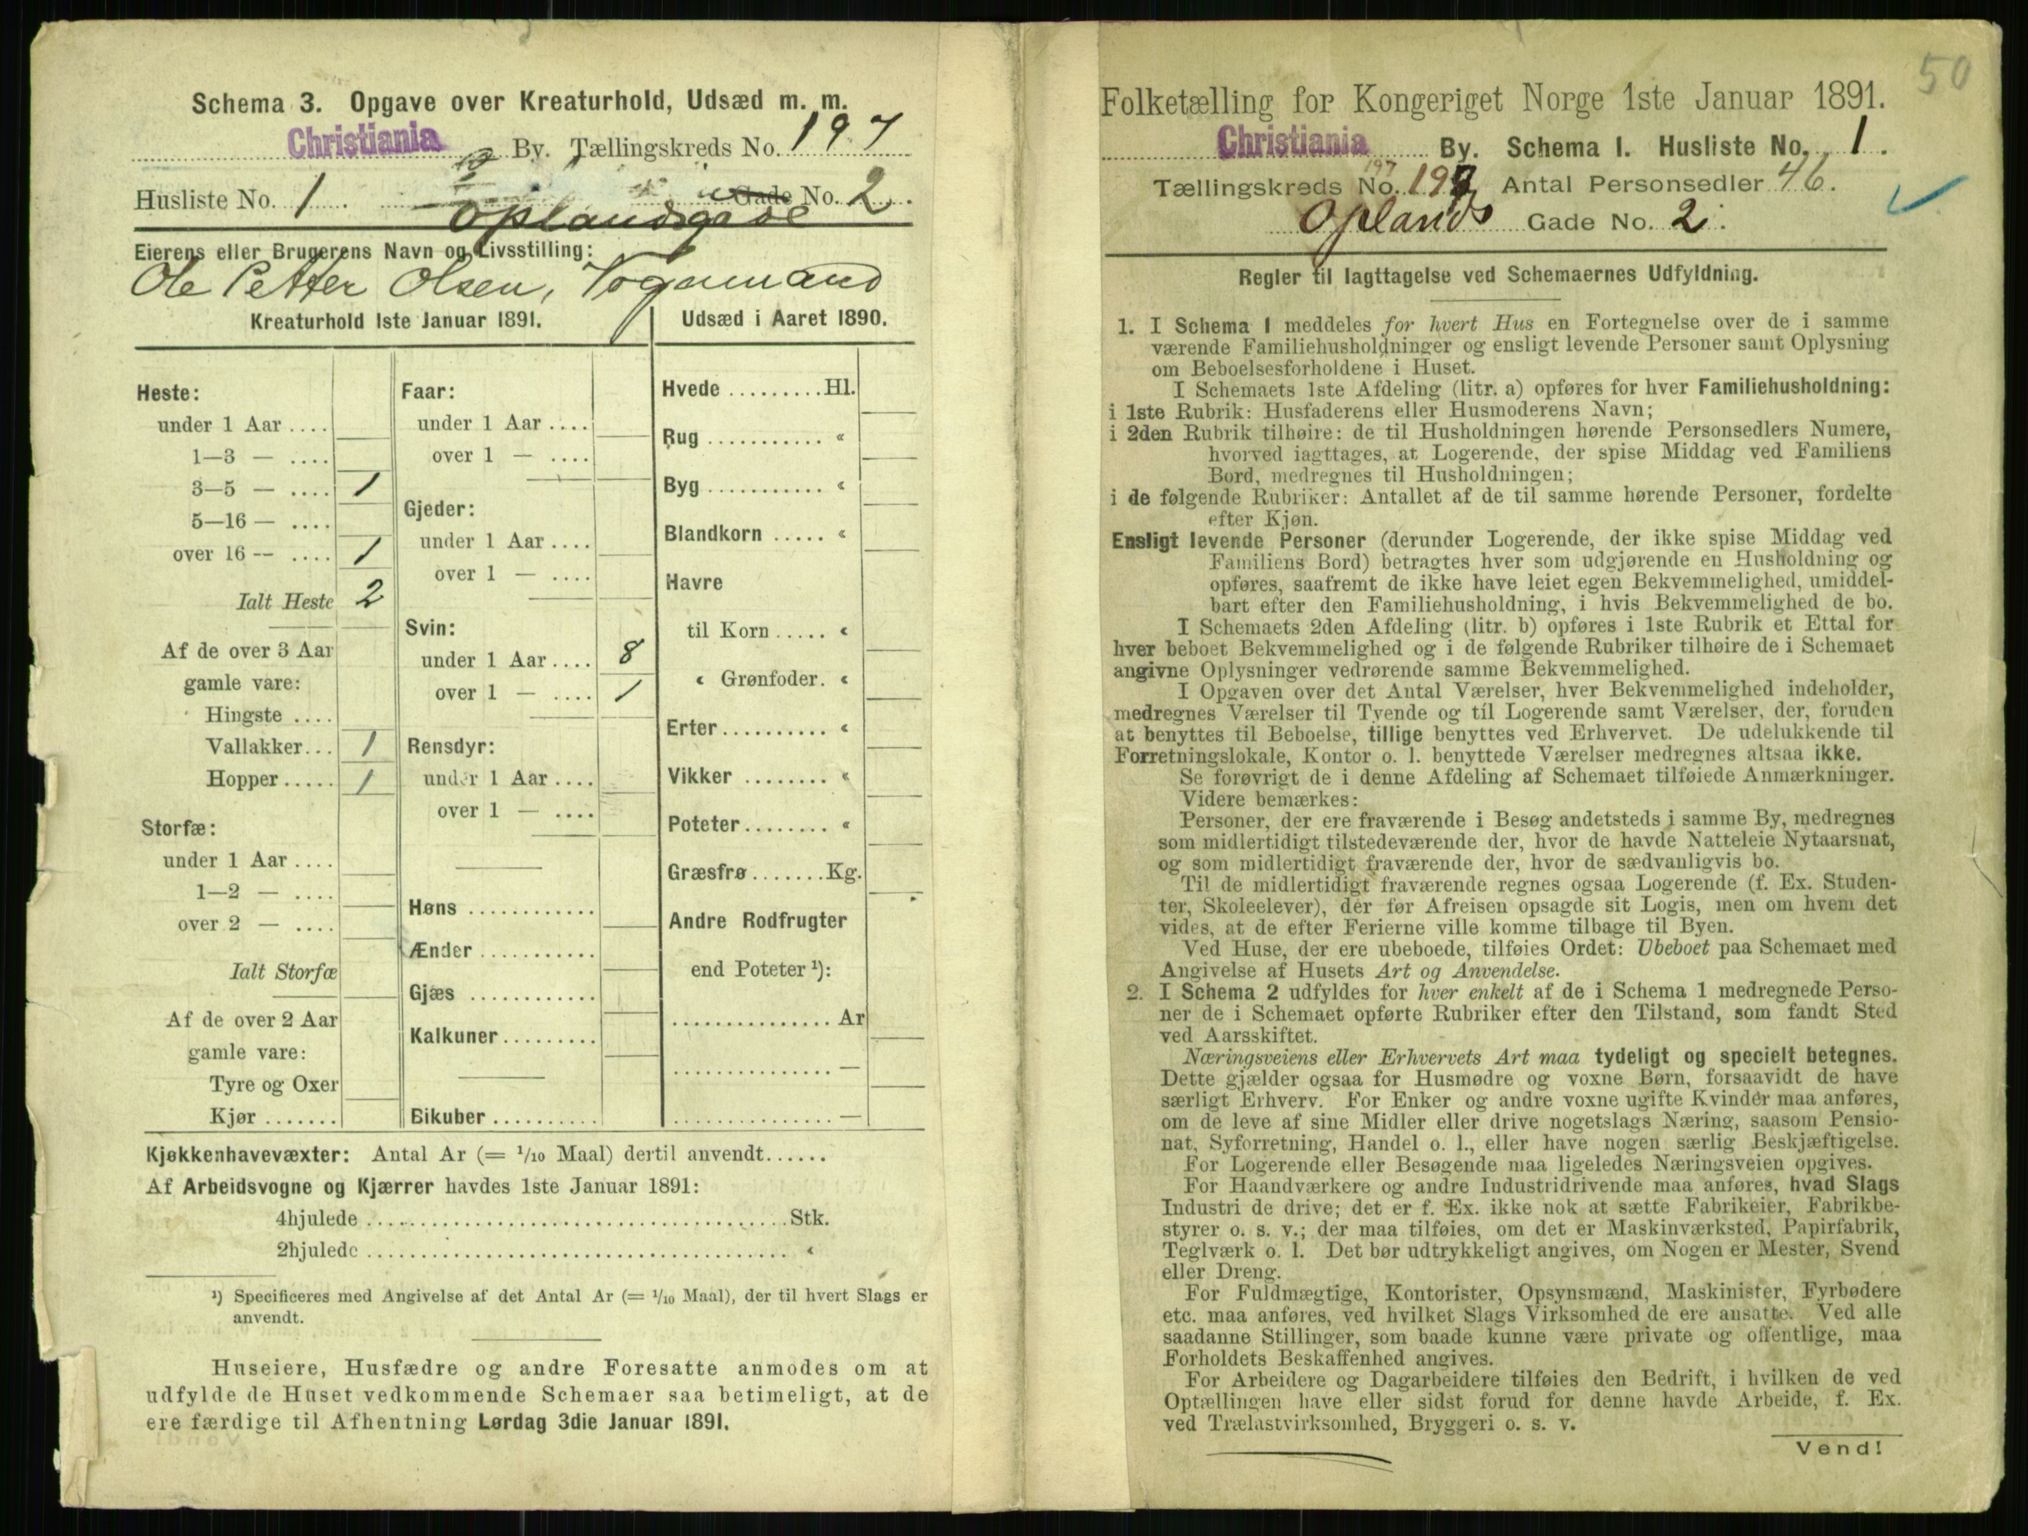 Schema 3. Opgave over Kreaturhold, Udsæd m. m.
Christiania By. Tællingskreds No. 197
Husliste No. 1 Gade No. 2.
Oplandsgade
Eierens eller Brugerens Navn og Livsstilling:
Ole Petter Olsen, Vognmand
Kreaturhold 1ste Januar 1891.
Udsæd i Aaret 1890.
Heste:
under 1 Aar ....
1—3 — ....
3—5 — .... 1
5—16 — ....
over 16 -- .... 1
Ialt Heste 2
Af de over 3 Aar
gamle vare:
Hingste ....
Vallakker... 1
Hopper..... 1
Storfæ:
under 1 Aar ....
1—2 — ....
over 2 — ....
Ialt Storfæ
Af de over 2 Aar
gamle vare:
Tyre og Oxer
Kjør .......
Faar:
under 1 Aar ....
over 1 — ....
Gjeder:
under 1 Aar ....
over 1 — ....
Svin:
under 1 Aar.... 8
over 1 — .... 1
Rensdyr:
under 1 Aar ....
over 1 — ....
Høns ............
Ænder ...........
Gjæs ............
Kalkuner.........
Bikuber..........
Hvede .........Hl.
Rug ........... «
Byg............ «
Blandkorn ..... «
Havre
til Korn ..... «
« Grønfoder. «
Erter.......... «
Vikker ........ «
Poteter........ «
Græsfrø.......Kg.
Andre Rodfrugter
end Poteter ¹):
............... Ar
............... —
............... —
Kjøkkenhavevæxter: Antal Ar (= 1/10 Maal) dertil anvendt......
Af Arbeidsvogne og Kjærrer havdes 1ste Januar 1891:
4hjulede ........................................Stk.
2hjulede ........................................ «
¹) Specificeres med Angivelse af det Antal Ar (= 1/10 Maal), der til hvert Slags er
anvendt.
Huseiere, Husfædre og andre Foresatte anmodes om at
udfylde de Huset vedkommende Schemaer saa betimeligt, at de
ere færdige til Afhentning Lørdag 3die Januar 1891.
50
Folketælling for Kongeriget Norge 1ste Januar 1891.
Christiania By. Schema I. Husliste No. 1.
197
Tællingskreds No. 197 Antal Personsedler 46.
Oplands Gade No. 2.
Regler til Iagttagelse ved Schemaernes Udfyldning.
1. I Schema 1 meddeles for hvert Hus en Fortegnelse over de i samme
værende Familiehusholdninger og ensligt levende Personer samt Oplysning
om Beboelsesforholdene i Huset.
I Schemaets 1ste Afdeling (litr. a) opføres for hver Familiehusholdning:
i 1ste Rubrik: Husfaderens eller Husmoderens Navn;
i 2den Rubrik tilhøire: de til Husholdningen hørende Personsedlers Numere,
hvorved iagttages, at Logerende, der spise Middag ved Familiens
Bord, medregnes til Husholdningen;
i de følgende Rubriker: Antallet af de til samme hørende Personer, fordelte
efter Kjøn.
Ensligt levende Personer (derunder Logerende, der ikke spise Middag ved
Familiens Bord) betragtes hver som udgjørende en Husholdning og
opføres, saafremt de ikke have leiet egen Bekvemmelighed, umiddel-
bart efter den Familiehusholdning, i hvis Bekvemmelighed de bo.
I Schemaets 2den Afdeling (litr. b) opføres i 1ste Rubrik et Ettal for
hver beboet Bekvemmelighed og i de følgende Rubriker tilhøire de i Schemaet
angivne Oplysninger vedrørende samme Bekvemmelighed.
I Opgaven over det Antal Værelser, hver Bekvemmelighed indeholder,
medregnes Værelser til Tyende og til Logerende samt Værelser, der, foruden
at benyttes til Beboelse, tillige benyttes ved Erhvervet. De udelukkende til
Forretningslokale, Kontor o. l. benyttede Værelser medregnes altsaa ikke.
Se forøvrigt de i denne Afdeling af Schemaet tilføiede Anmærkninger.
Videre bemærkes:
Personer, der ere fraværende i Besøg andetsteds i samme By, medregnes
som midlertidigt tilstedeværende der, hvor de havde Natteleie Nytaarsnat,
og som midlertidigt fraværende der, hvor de sædvanligvis bo.
Til de midlertidigt fraværende regnes ogsaa Logerende (f. Ex. Studen-
ter, Skoleelever), der før Afreisen opsagde sit Logis, men om hvem det
vides, at de efter Ferierne ville komme tilbage til Byen.
Ved Huse, der ere ubeboede, tilføies Ordet: Ubeboet paa Schemaet med
Angivelse af Husets Art og Anvendelse.
2. I Schema 2 udfyldes for hver enkelt af de i Schema 1 medregnede Perso-
ner de i Schemaet opførte Rubriker efter den Tilstand, som fandt Sted
ved Aarsskiftet.
Næringsveiens eller Erhvervets Art maa tydeligt og specielt betegnes.
Dette gjælder ogsaa for Husmødre og voxne Børn, forsaavidt de have
særligt Erhverv. For Enker og andre voxne ugifte Kvinder maa anføres,
om de leve af sine Midler eller drive nogetslags Næring, saasom Pensio-
nat, Syforretning, Handel o. l., eller have nogen særlig Beskjæftigelse.
For Logerende eller Besøgende maa ligeledes Næringsveien opgives.
For Haandværkere og andre Industridrivende maa anføres, hvad Slags
Industri de drive; det er f. Ex. ikke nok at sætte Fabrikeier, Fabrikbe-
styrer o. s. v.; der maa tilføies, om det er Maskinværksted, Papirfabrik,
Teglværk o. l. Det bør udtrykkeligt angives, om Nogen er Mester, Svend
eller Dreng.
For Fuldmægtige, Kontorister, Opsynsmænd, Maskinister, Fyrbødere
etc. maa anføres, ved hvilket Slags Virksomhed de ere ansatte. Ved alle
saadanne Stillinger, som baade kunne være private og offentlige, maa
Forholdets Beskaffenhed angives.
For Arbeidere og Dagarbeidere tilføies den Bedrift, i hvilken de ved
Optællingen have eller sidst forud for denne havde Arbeide, f. Ex.
ved Trælastvirksomhed, Bryggeri o. s. v.
Vend!